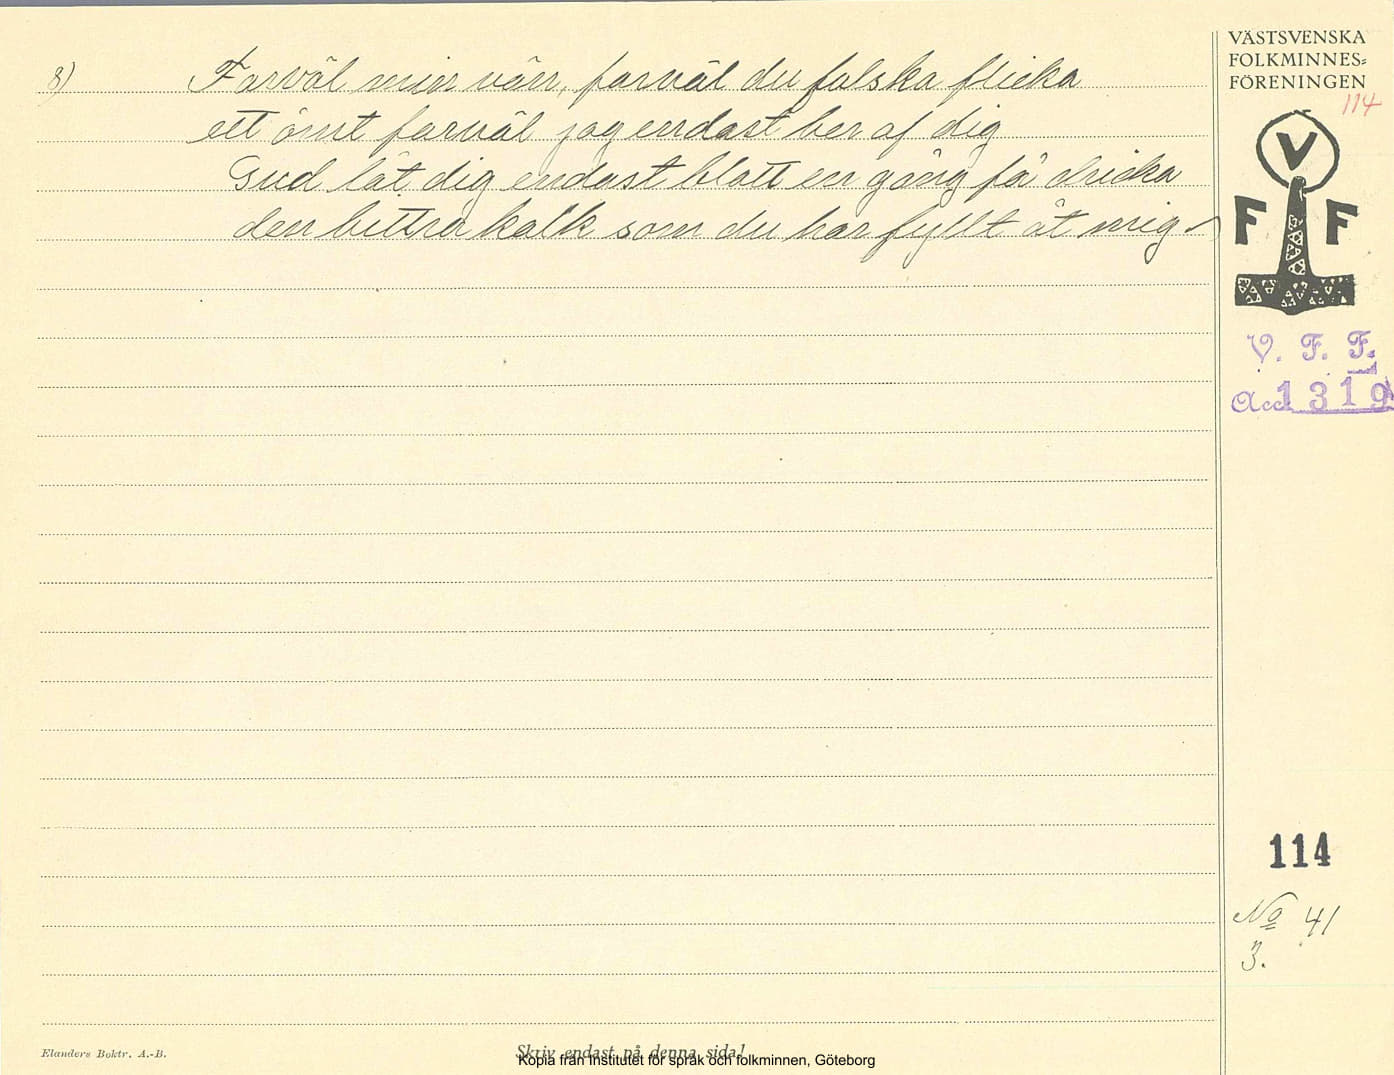 8) Farväl min vän, farväl du falska flicka
ett ömt farväl jag endast ber af dig
Gud låt dig endast blott en gång få dricka
den bittra kalk som du har fyllt åt mig
VÄSTSVENSKA
FOLKMINNES-
FÖRENINGEN
114
V
F F
V. F. F.
Acc 1319
114
No 41
3.
Elanders Boktr. A.-B.
Skriv endast på denna sida!
Kopia från Institutet för språk och folkminnen, Göteborg